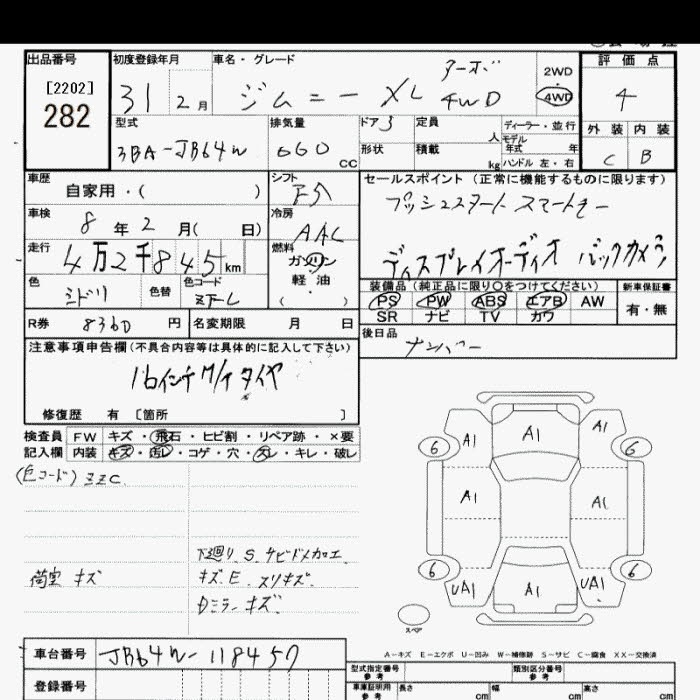 出品番号 初度登録年月 車名・グレード ターボ 評価点
[2202] 31 2月 ジムニー XL 4WD 2WD 4WD 4
282
型式 排気量 ドア 3 定員 人 ディーラー・並行 外装 内装
3BA-JB64W 660 CC 形状 積載 kg モデル年式 年 ハンドル 左・右 C B
車歴 シフト セールスポイント (正常に機能するものに限ります)
自家用・( ) プッシュスタート スマートキー
車検 8年2月( 日) 冷房 AAC
走行 4万2千845km 燃料 ガソリン 軽油 ・( ) ディスプレイオーディオ バックカメラ
色 ミドリ 色替 色コード 装備品 (純正品に限り○をつけてください) 新車保証書
PS PW ABS エアB AW 有・無
SR ナビ TV カワ
R券 8360円 名変期限 月 日 後日品
ナンバー
注意事項申告欄(不具合内容等は具体的に記入して下さい)
16インチ タイヤ
修復歴 有 [箇所 ]
検査員 FW キズ・飛石・ヒビ割・リペア跡・×要
記入欄 内装 キズ・汚レ・コゲ・穴・スレ・キレ・破レ
(色コード) ZZC
下廻り S サビドメカエ
荷室 キズ キズ E スリキズ
ミラー キズ
A1 A1 A1
6 6
A1 A1
6 6
UA1 A1 UA1
スペア
A-キズ E-エクボ U-凹み W-補修跡 S-サビ C-腐食 XX-交換済
車台番号 JB64W-118457
登録番号
型式指定番号 参考 類別区分番号 参考
車庫証明用 参考 長さ cm 幅 cm 高さ cm